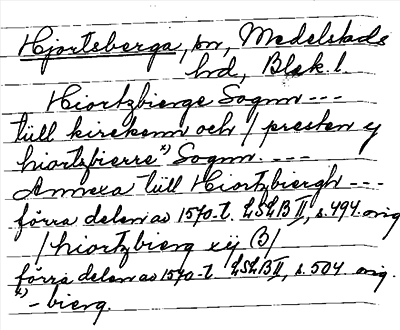 Hjortsberga, sn, Medelstads
hd, Blek. l.
Hiortzbierge Sognn ---
tüll kirckenn och / presten y
hiortzbierre x) Sognn. ---
Annexa tüll Hiortzbiergh ---
förra delen av 1570-t. LSLB II, s. 494. orig
/ hiortzbierg xij B /
förra delen av 1570-t. LSLB II, s. 504. orig.
x) - bierg.